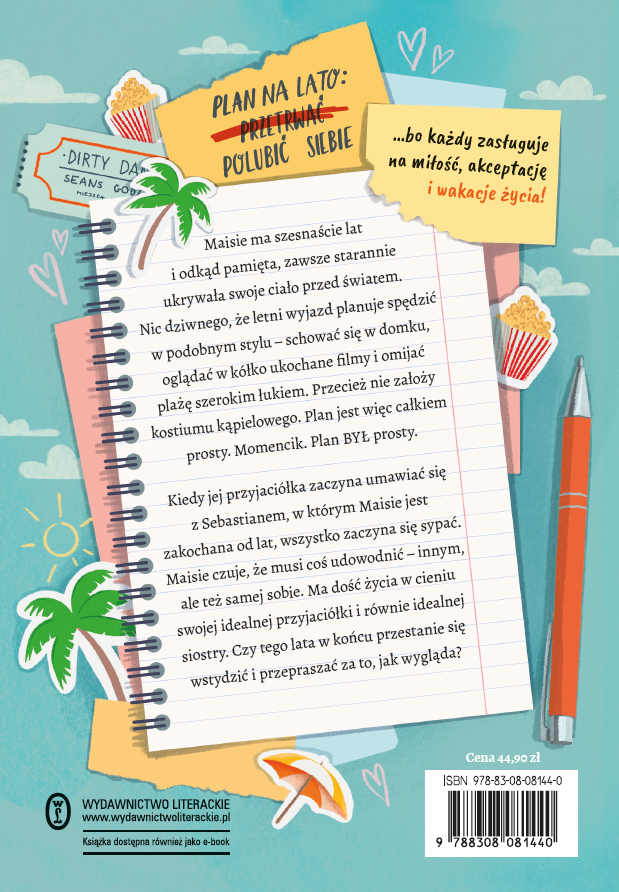 PLAN NA LATO:
PRZETRWAĆ
POLUBIĆ SIEBIE
...bo każdy zasługuje
na miłość, akceptację
i wakacje życia!
·DIRTY DAN
SEANS GODZ
MIEJSCE
Maisie ma szesnaście lat
i odkąd pamięta, zawsze starannie
ukrywała swoje ciało przed światem.
Nic dziwnego, że letni wyjazd planuje spędzić
w podobnym stylu – schować się w domku,
oglądać w kółko ukochane filmy i omijać
plażę szerokim łukiem. Przecież nie założy
kostiumu kąpielowego. Plan jest więc całkiem
prosty. Momencik. Plan BYŁ prosty.
Kiedy jej przyjaciółka zaczyna umawiać się
z Sebastianem, w którym Maisie jest
zakochana od lat, wszystko zaczyna się sypać.
Maisie czuje, że musi coś udowodnić – innym,
ale też samej sobie. Ma dość życia w cieniu
swojej idealnej przyjaciółki i równie idealnej
siostry. Czy tego lata w końcu przestanie się
wstydzić i przepraszać za to, jak wygląda?
Cena 44,90 zł
ISBN 978-83-08-08144-0
9 788308 081440
WYDAWNICTWO LITERACKIE
www.wydawnictwoliterackie.pl
Książka dostępna również jako e-book